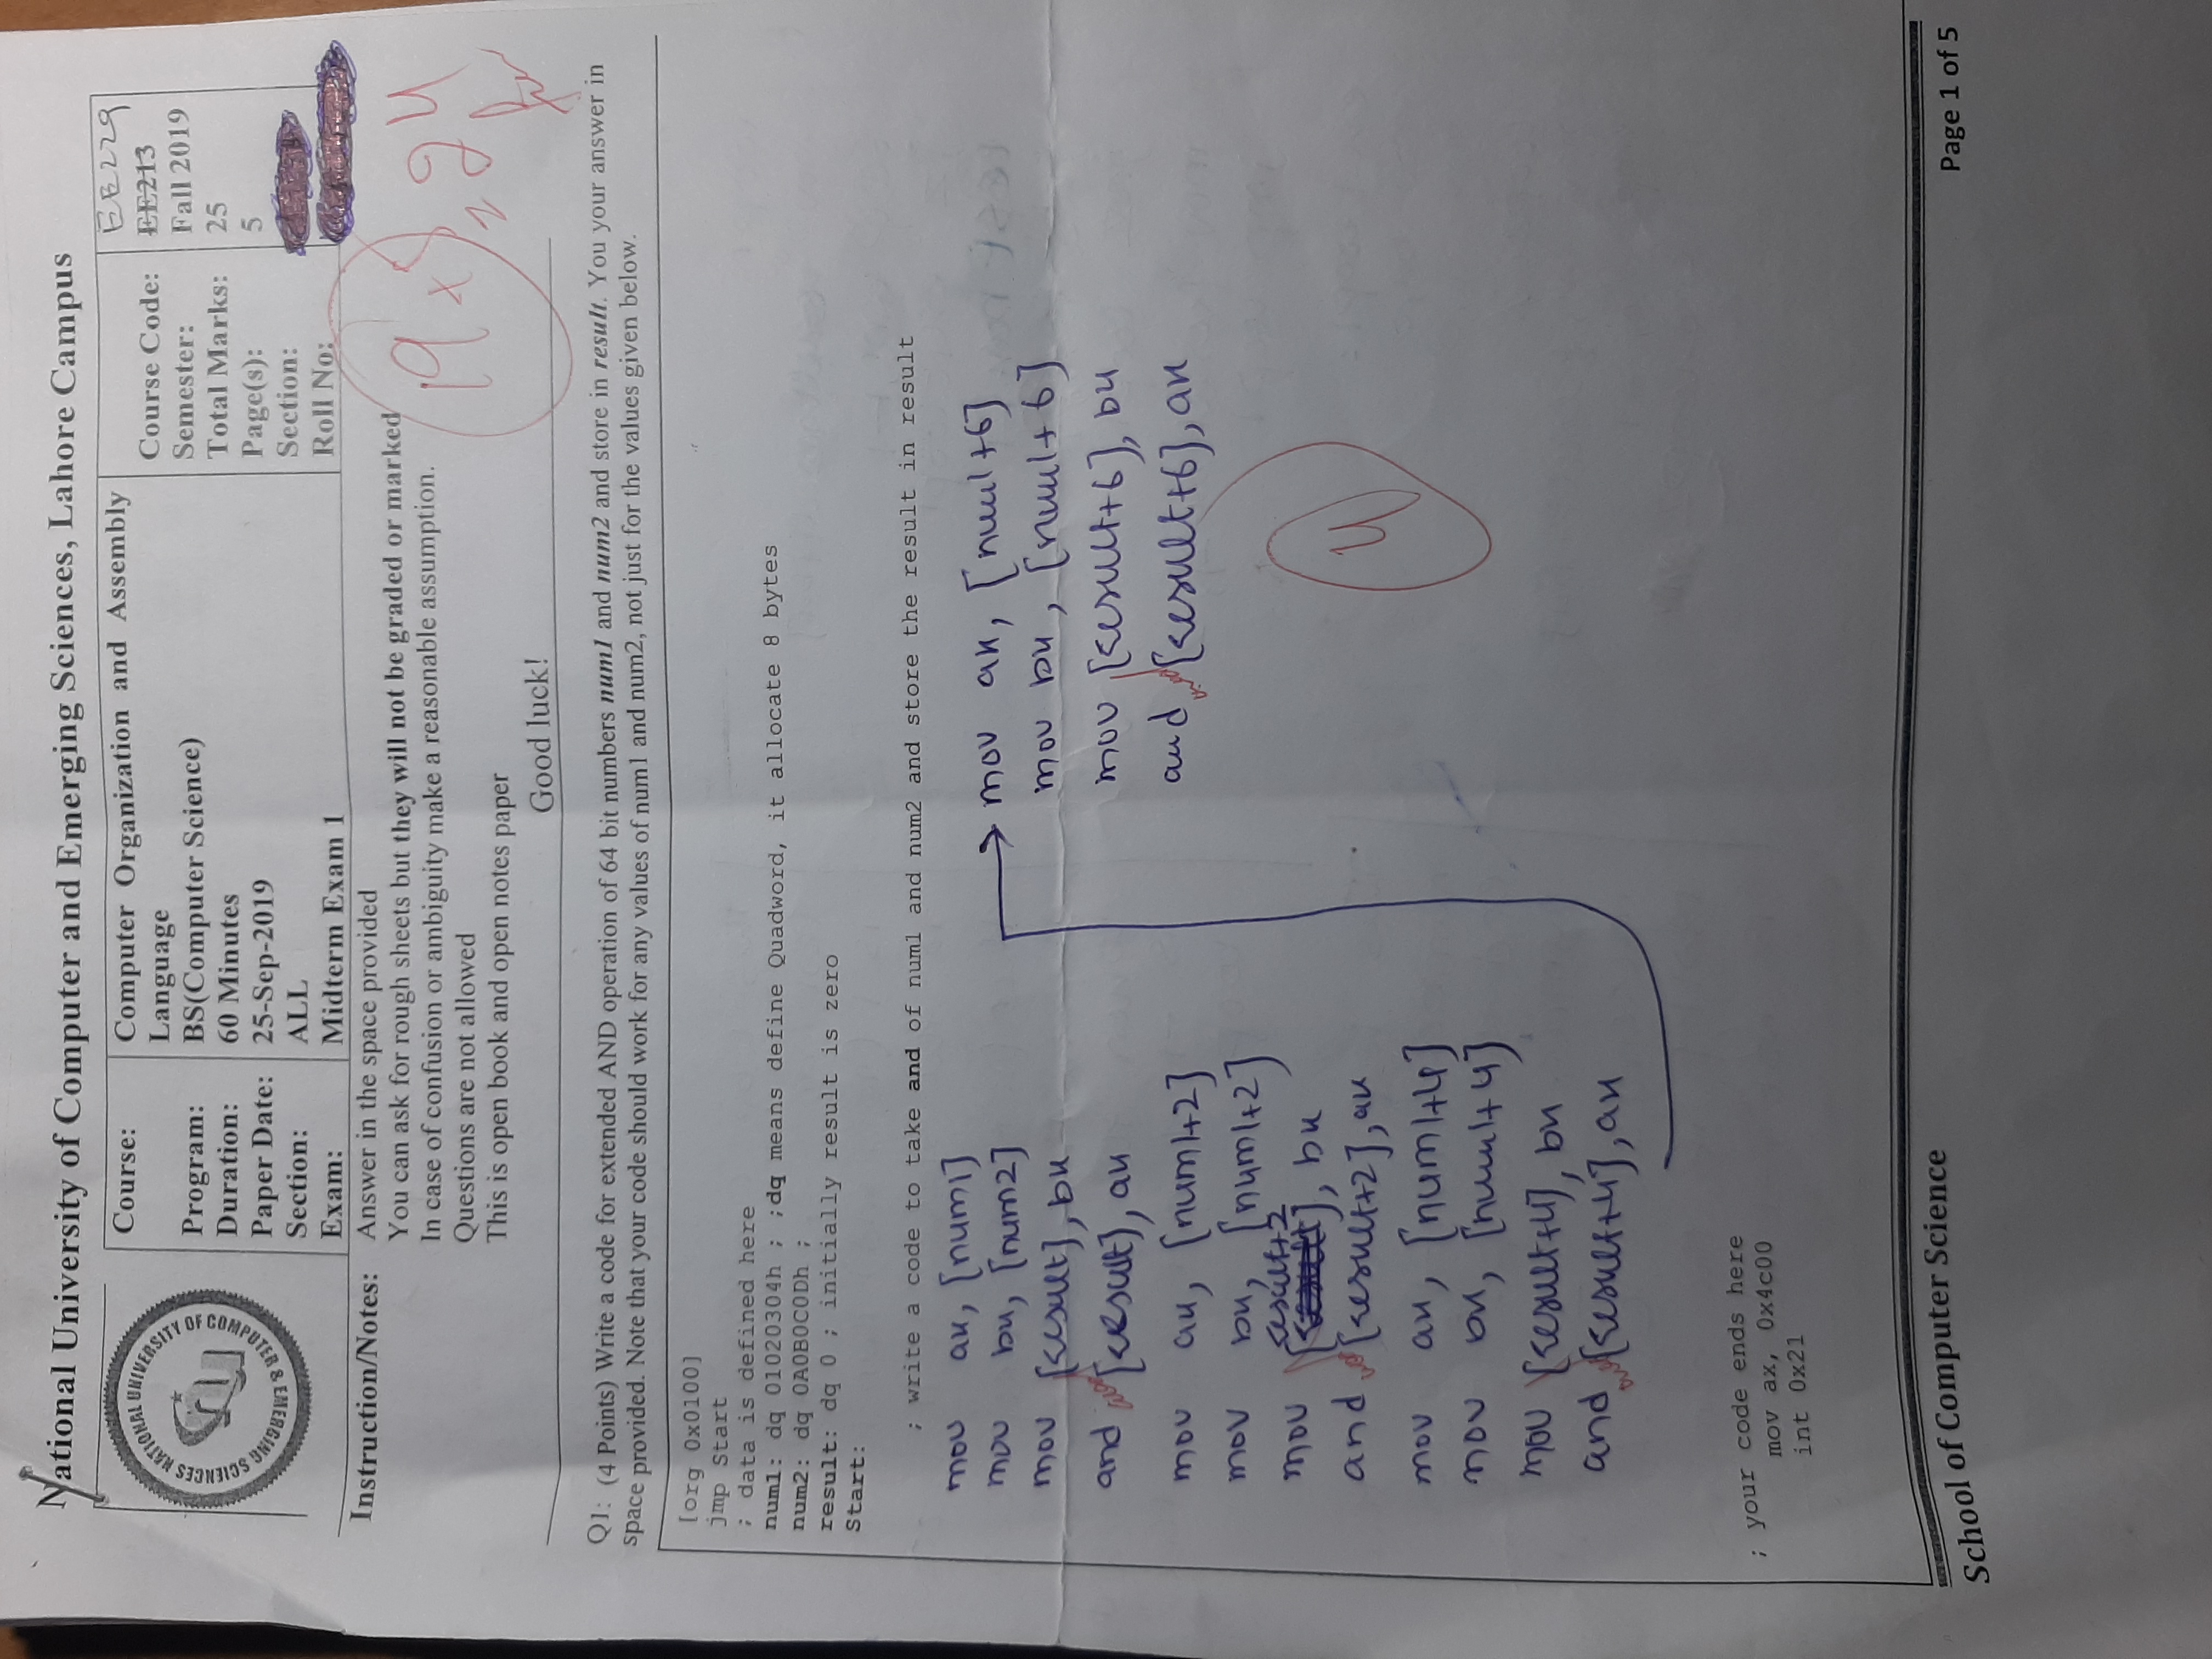 National University of Computer and Emerging Sciences, Lahore Campus
NATIONAL UNIVERSITY OF COMPUTER & EMERGING SCIENCES
nu
Course: Computer Organization and Assembly Language
Program: BS(Computer Science)
Duration: 60 Minutes
Paper Date: 25-Sep-2019
Section: ALL
Exam: Midterm Exam 1
EE229
Course Code: EE213
Semester: Fall 2019
Total Marks: 25
Page(s): 5
Section:
Roll No:
Instruction/Notes: Answer in the space provided
You can ask for rough sheets but they will not be graded or marked
In case of confusion or ambiguity make a reasonable assumption.
Questions are not allowed
This is open book and open notes paper
Good luck!
19
24
Q1: (4 Points) Write a code for extended AND operation of 64 bit numbers num1 and num2 and store in result. You your answer in
space provided. Note that your code should work for any values of num1 and num2, not just for the values given below.
[org 0x0100]
jmp Start
; data is defined here
num1: dq 01020304h ; ;dq means define Quadword, it allocate 8 bytes
num2: dq 0A0B0C0Dh ;
result: dq 0 ; initially result is zero
Start:
; write a code to take and of num1 and num2 and store the result in result
mov ax, [num1]
mov bx, [num2]
mov [result], bx
and word [result], ax
mov ax, [num1+2]
mov bx, [num1+2]
mov [result+2], bx
and word [result+2], ax
mov ax, [num1+4]
mov bx, [num1+4]
mov [result+4], bx
and word [result+4], ax
mov ax, [num1+6]
mov bx, [num1+6]
mov [result+6], bx
and word [result+6], ax
4
; your code ends here
mov ax, 0x4c00
int 0x21
School of Computer Science
Page 1 of 5